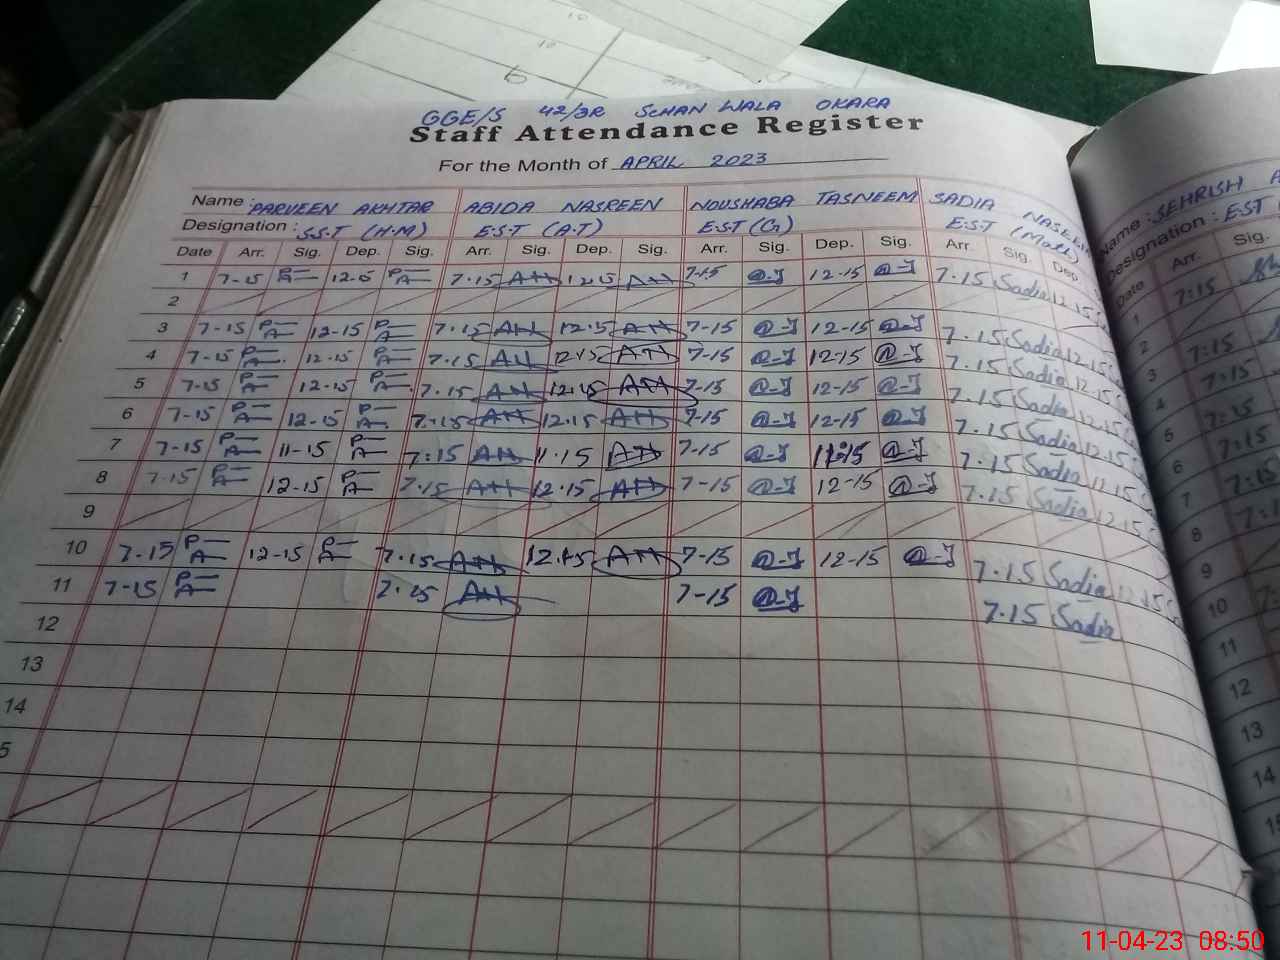 GGE/S 42/3R SCHAN WALA OKARA
Staff Attendance Register
For the Month of APRIL 2023
Name : PARVEEN AKHTAR ABIDA NASREEN NOUSHABA TASNEEM SADIA
Designation : S.S.T (H.M) E.S.T (A.T) E.S.T (Gn) E.S.T
Date Arr. Sig. Dep. Sig. Arr. Sig. Dep. Sig. Arr. Sig. Dep. Sig. Arr. Sig. Dep.
1 7-15 12-15 7.15 AH 12.15 AH 7-15 12-15 7.15 Sadia 12.15
2
3 7-15 12-15 7.15 AH 12.15 AH 7-15 12-15 7.15 Sadia 12.15
4 7-15 12-15 7.15 AH 12.15 AH 7-15 12-15 7.15 Sadia 12.15
5 7-15 12-15 7.15 AH 12.15 AH 7-15 12-15 7.15 Sadia 12.15
6 7-15 12-15 7.15 AH 12.15 AH 7-15 12-15 7.15 Sadia 12.15
7 7-15 11-15 7:15 AH 11.15 AH 7-15 11:15 7.15 Sadia
8 7-15 12-15 7.15 AH 12.15 AH 7-15 12-15 7.15 Sadia 12.15
9
10 7-15 12-15 7.15 AH 12.15 AH 7-15 12-15 7.15 Sadia 12.15
11 7-15 7.15 AH 7-15 7.15 Sadia
12
13
14
5
Name : SEHRISH
Designation : EST
Date Arr. Sig.
1 7:15
2
3 7:15
4 7:15
5 7:15
6 7:15
7 7:15
8
9
10
11
12
13
14
11-04-23 08:50